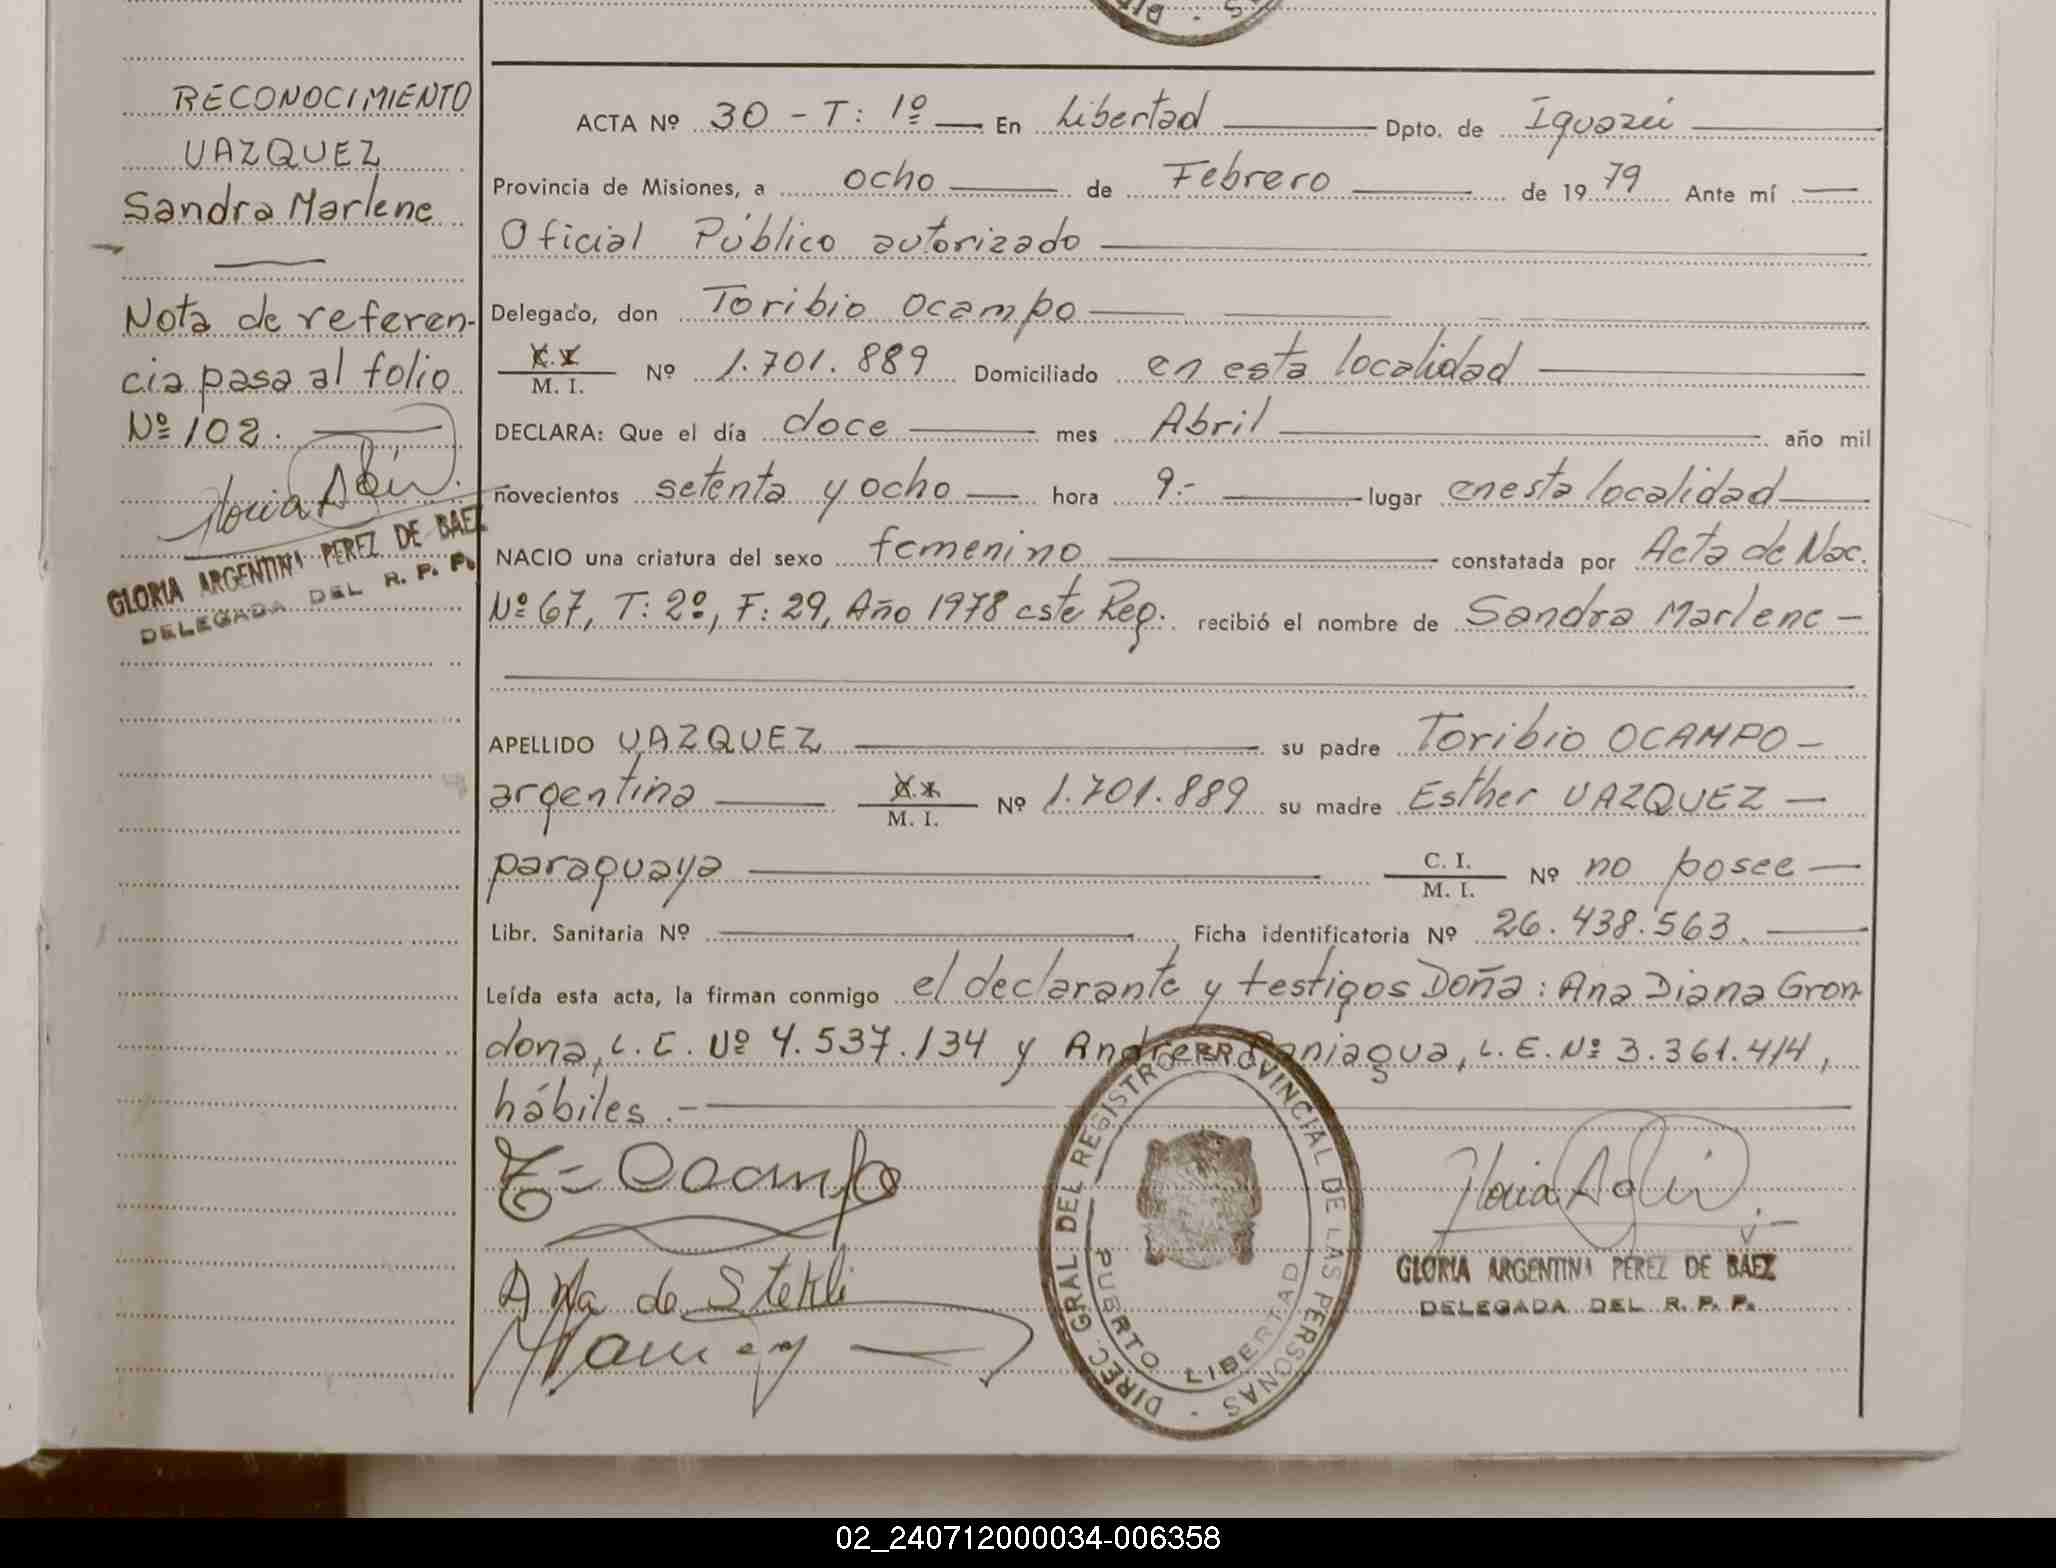 RECONOCIMIENTO
VAZQUEZ
Sandra Marlene
Nota de referen-
cia pasa al folio
Nº 102.
GLORIA ARGENTINA PEREZ DE BAEZ
DELEGADA DEL R. P. P.
ACTA Nº 30 - T: 1º En Libertad Dpto. de Iguazú
Provincia de Misiones, a ocho de Febrero de 1979 Ante mí
Oficial Público autorizado
Delegado, don Toribio Ocampo
C. I.
M. I. Nº 1.701.889 Domiciliado en esta localidad
DECLARA: Que el día doce mes Abril año mil
novecientos setenta y ocho hora 9.- lugar en esta localidad
NACIO una criatura del sexo femenino constatada por Acta de Nac.
Nº 67, T: 2º, F: 29, Año 1978 este Reg. recibió el nombre de Sandra Marlene -
APELLIDO VAZQUEZ su padre Toribio OCAMPO -
argentina M. I. Nº 1.701.889 su madre Esther VAZQUEZ -
paraguaya C. I.
M. I. Nº no posee
Libr. Sanitaria Nº Ficha identificatoria Nº 26.438.563.
Leída esta acta, la firman conmigo el declarante y testigos Doña: Ana Diana Gron-
dona, L.E. Nº 4.537.134 y Andrés Paniagua, L.E. Nº 3.361.414,
hábiles.-
T- Ocampo
Ana de Stekli
DIREC. GRAL DEL REGISTRO PROVINCIAL DE LAS PERSONAS
PUERTO LIBERTAD
GLORIA ARGENTINA PEREZ DE BAEZ
DELEGADA DEL R. P. P.
02_240712000034-006358